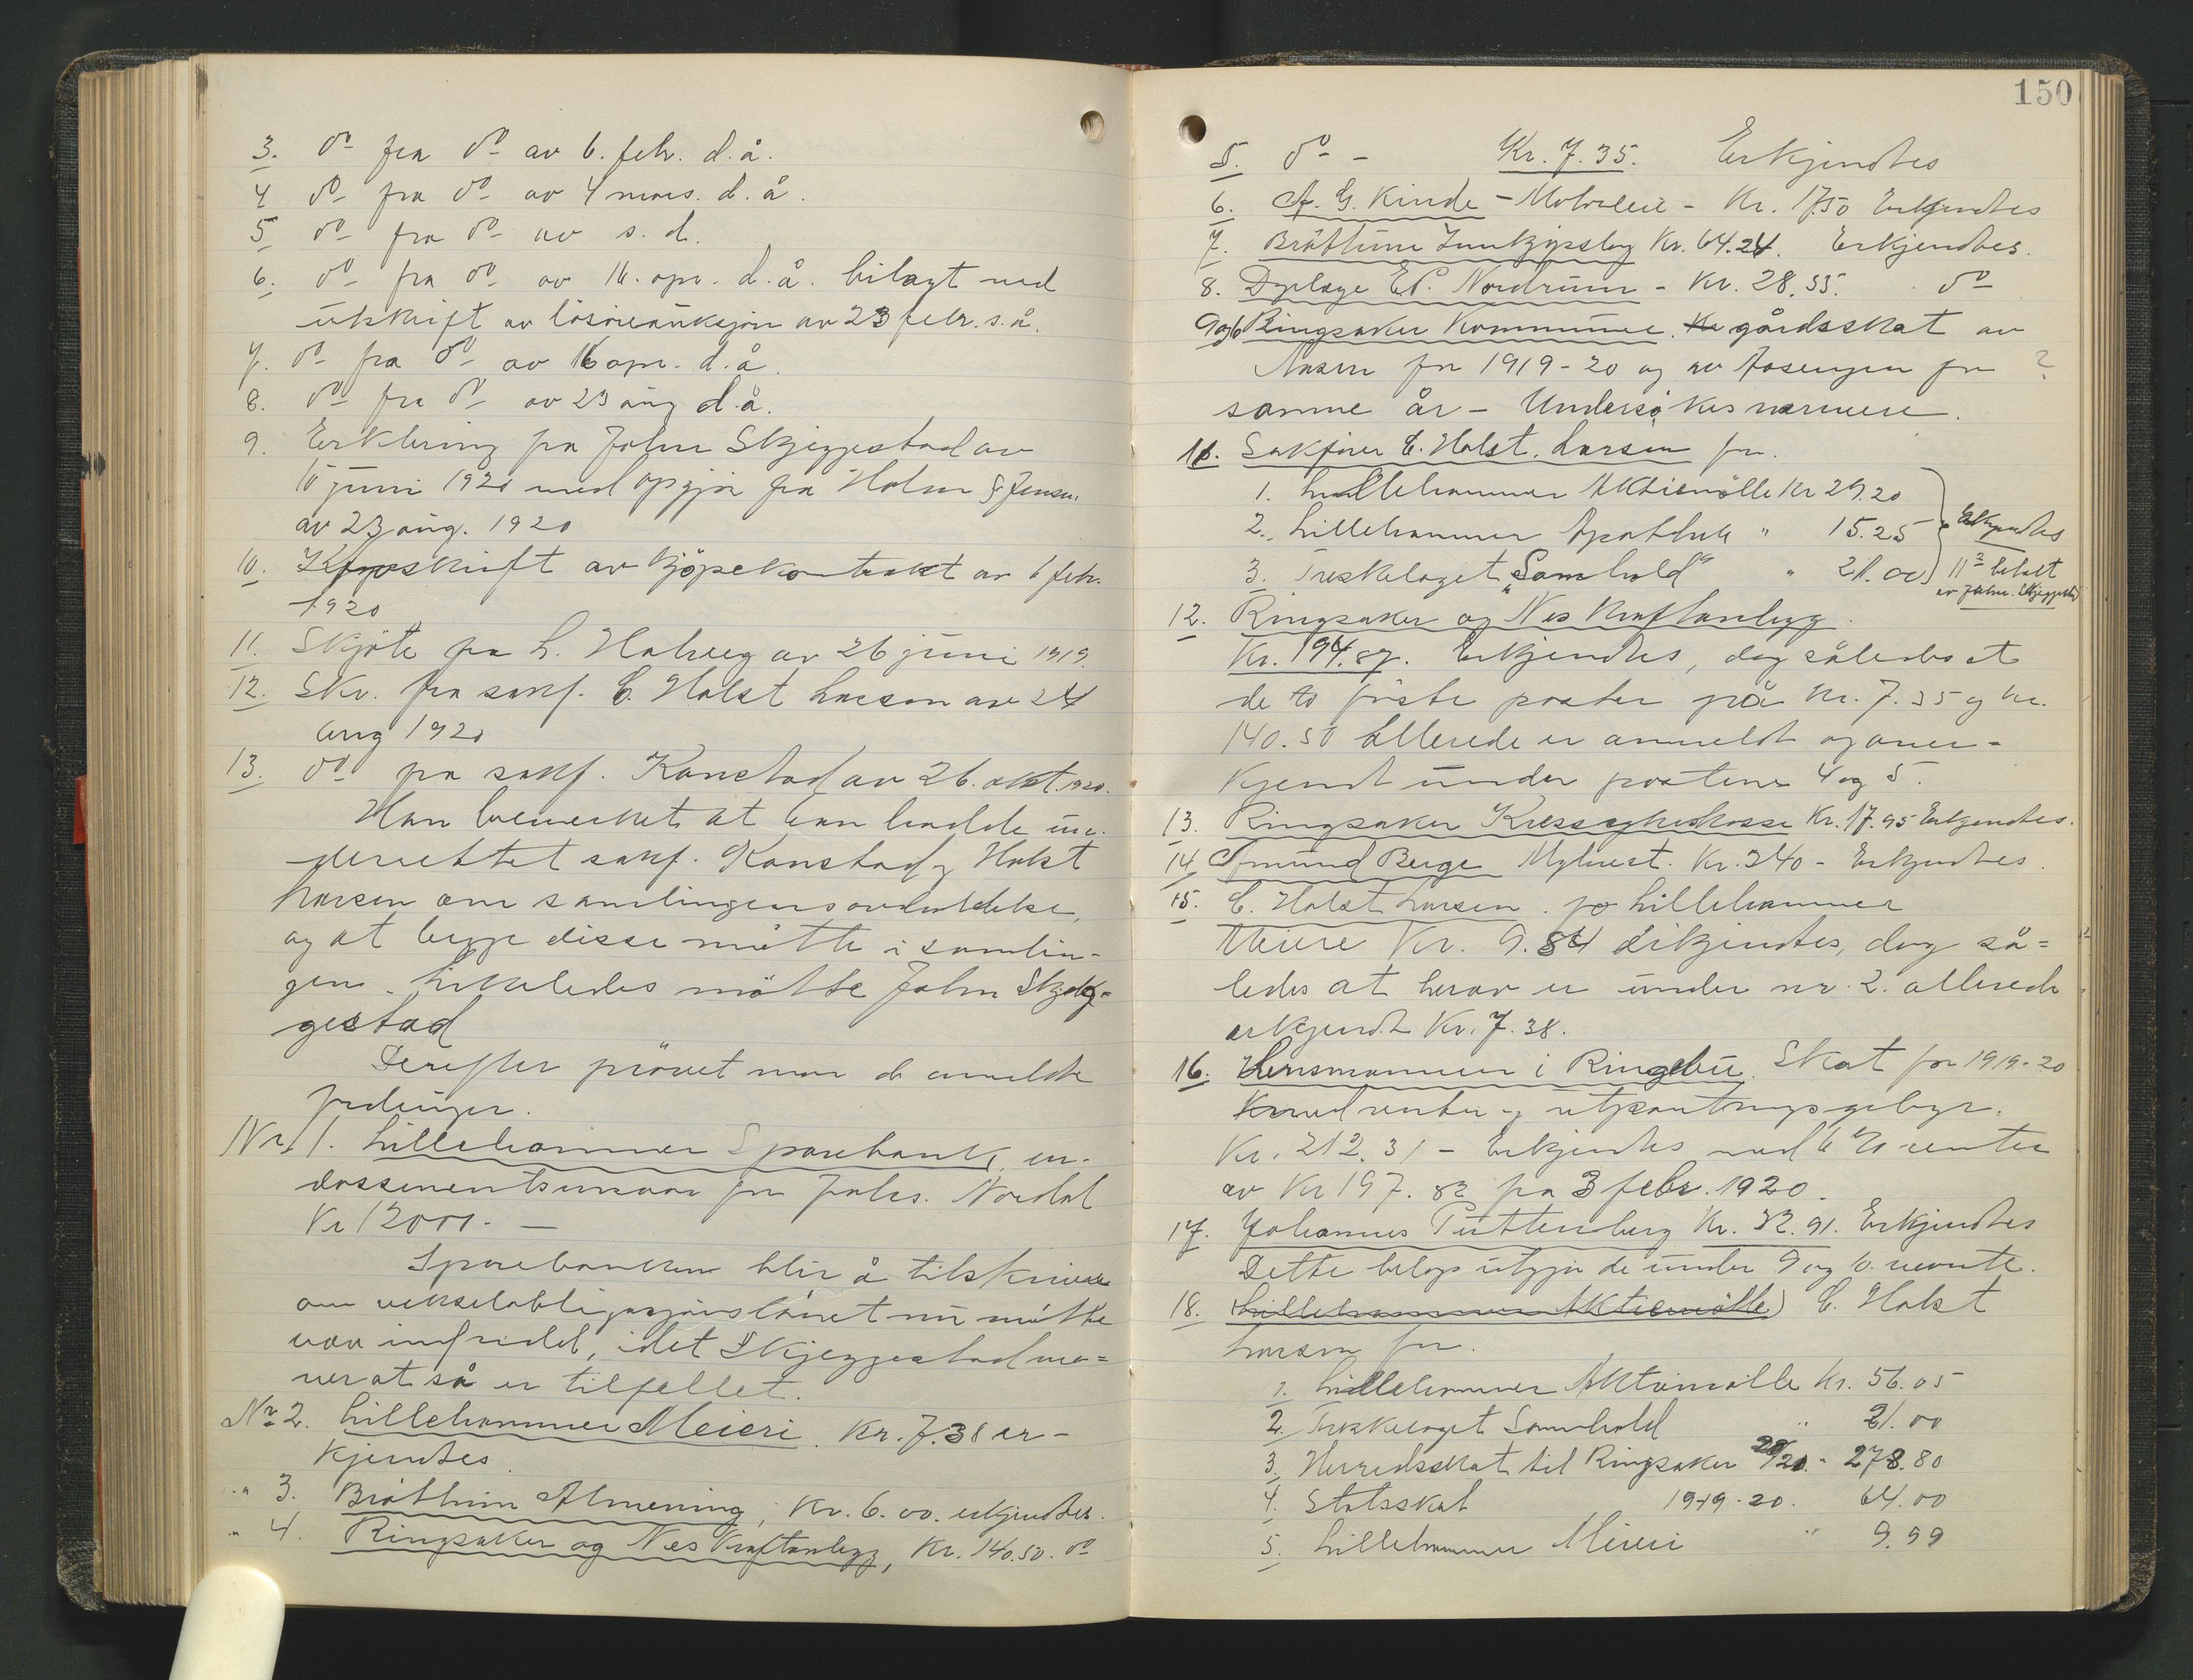 3. do fra do av 6. febr. d.å.
4 do fra do av 4 mars. d.å.
5 do fra do av s.d.
6. do fra do av 16. apr. d.å. bilagt med
utskrift av lösöreauksjon av 23 febr. s.å.
7. do fra do av 16 apr. d.å.
8. do fra do av 23 aug d.å.
9. Erklæring fra John Skjeggestad av
10 juni 1920 med opgjör fra Holm & Jensen
av 23 aug. 1920
10. avskrift av kjöpekontrakt av 6 febr.
1920
11. Skjöte fra L. Halveg av 26 juni 1919.
12. Skr. fra sakf. C. Holst Larsen av 24
aug 1920
13. do fra sakf. Kanstad av 26. okt. 1920.
Han bemerket at han hadde un-
derrettet sakf. Kanstad og Holst
Larsen om samlingens avholdelse,
og at begge disse mötte i samlin-
gen. Likeledes mötte John Skjeg-
gestad
Derefter prövet man de anmeldte
fordringer.
Nr. 1. Lillehammer Sparebank, en-
dossementsansvar for Johs. Nordal
Kr 12000.-
Sparebanken blir å tilskrive
om vekselobligasjonslånet nu måtte
være indfridd, idet Skjeggestad me=
ner at så er tilfellet.
Nr 2. Lillehammer Meieri. Kr. 7.38 er-
kjendtes
" 3. Bröttum Almenning, Kr. 6.00. erkjendtes.
" 4. Ringsaker og Nes Kraftanlegg, Kr. 140.50. do
150
5. do - Kr. 7.35. Erkjendtes
6. A. G. Kinde - Motorleie - Kr. 17.50 Erkjendtes
7. Bröttum Kr. 64.24. Erkjendtes.
8. Dyrlæge E. P. Nordrum - Kr. 28.55. do
9 og 10 Ringsaker Kommune. Kr gårdsskat av
Aasen for 1919-20 og av Aasengen for ?
samme år - Undersökes nærmere.
11. Sakförer C. Holst. Larsen for.
1. Lillehammer Aktiemölle Kr 29.20
2. Lillehammer Apothek " 15.25 Erkjendtes
3. Treskelaget "Samhold" " 21.00 11 3 betalt
av John. Skjeggestad
12. Ringsaker og Nes Kraftanlegg.
Kr. 194.87. Erkjendtes, dog således at
de to förste poster på Kr. 7.35 og kr.
140.50 allerede er anmeldt og aner-
kjendt under postene 4 og 5.
13. Ringsaker Kredssykekasse Kr. 17.95 Erkjendtes.
14. Amund Berge Mylnest. Kr. 240 - Erkjendtes.
15. C. Holst Larsen. for Lillehammer
Meieri Kr. 9.84 Erkjendtes, dog så=
ledes at herav er under nr. 2. allerede
erkjendt Kr. 7.38.
16. Lensmannen i Ringebu. Skat for 1919-20
med renter og utpantningsgebyr.
Kr. 212.31 - Erkjendtes med 6 % renter
av Kr 197.82 fra 3 febr. 1920.
17. Johannes Kr. 32.91. Erkjendtes
Dette belöp utgjör de under 9 og 10. nevnte.
18. (Lillehammer Aktiemölle) C. Holst
Larsen for.
1. Lillehammer Aktiemölle Kr. 56.05
2. Treskelaget Samhold " 21.00
3. Herredsskat til Ringsaker 20/20. " 278.80
4. Statsskat 1919-20. 64.00
5. Lillehammer Meieri " 9.99